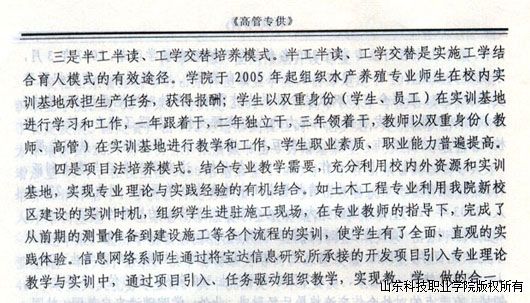 《高管专供》
三是半工半读、工学交替培养模式。半工半读、工学交替是实施工学结
合育人模式的有效途径。学院于 2005 年起组织水产养殖专业师生在校内实
训基地承担生产任务，获得报酬；学生以双重身份（学生、员工）在实训基地
进行学习和工作，一年跟着干，二年独立干，三年领着干，教师以双重身份（教
师、高管）在实训基地进行教学和工作，学生职业素质、职业能力普遍提高。
四是项目法培养模式。结合专业教学需要，充分利用校内外资源和实训
基地，实现专业理论与实践经验的有机结合。如土木工程专业利用我院新校
区建设的实训时机，组织学生进驻施工现场，在专业教师的指导下，完成了
从前期的测量准备到建设施工等各个流程的实训，使学生有了全面、直观的实
践体验。信息网络系师生通过将宝达信息研究所承接的开发项目引入专业理论
教学与实训中，通过项目引入、任务驱动组织教学，实现教、学、做的合一
山东科技职业学院版权所有